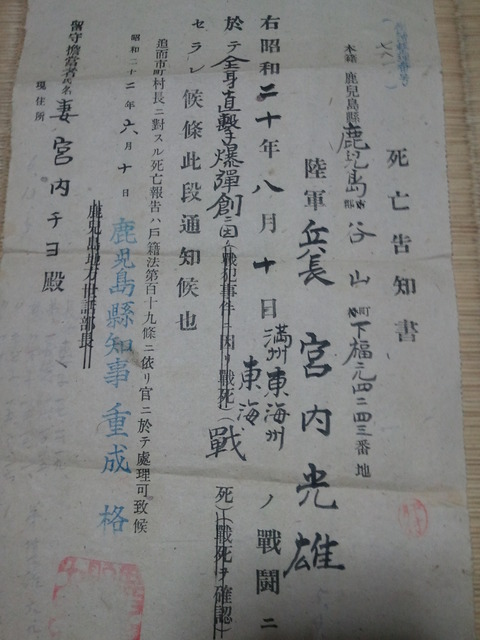 死亡告知書
本籍 鹿児島縣鹿児島郡谷山町下福元四二四三番地
陸軍兵長 宮内光雄
右昭和二十年八月十日満州東海州東海ノ戰闘ニ
於テ全身直撃爆彈創ニ因リ(戰犯事件ニ因リ戰死)(戰死)(戰死ヲ確認)
セラレ候條此段通知候也
追而市町村長ニ對スル死亡報告ハ戸籍法第百十九條ニ依リ官ニ於テ處理可致候
昭和二十二年六月十日
鹿児島地方世話部長
鹿児島縣知事 重成 格
留守擔當者
現住所
氏名 妻 宮内チヨ殿